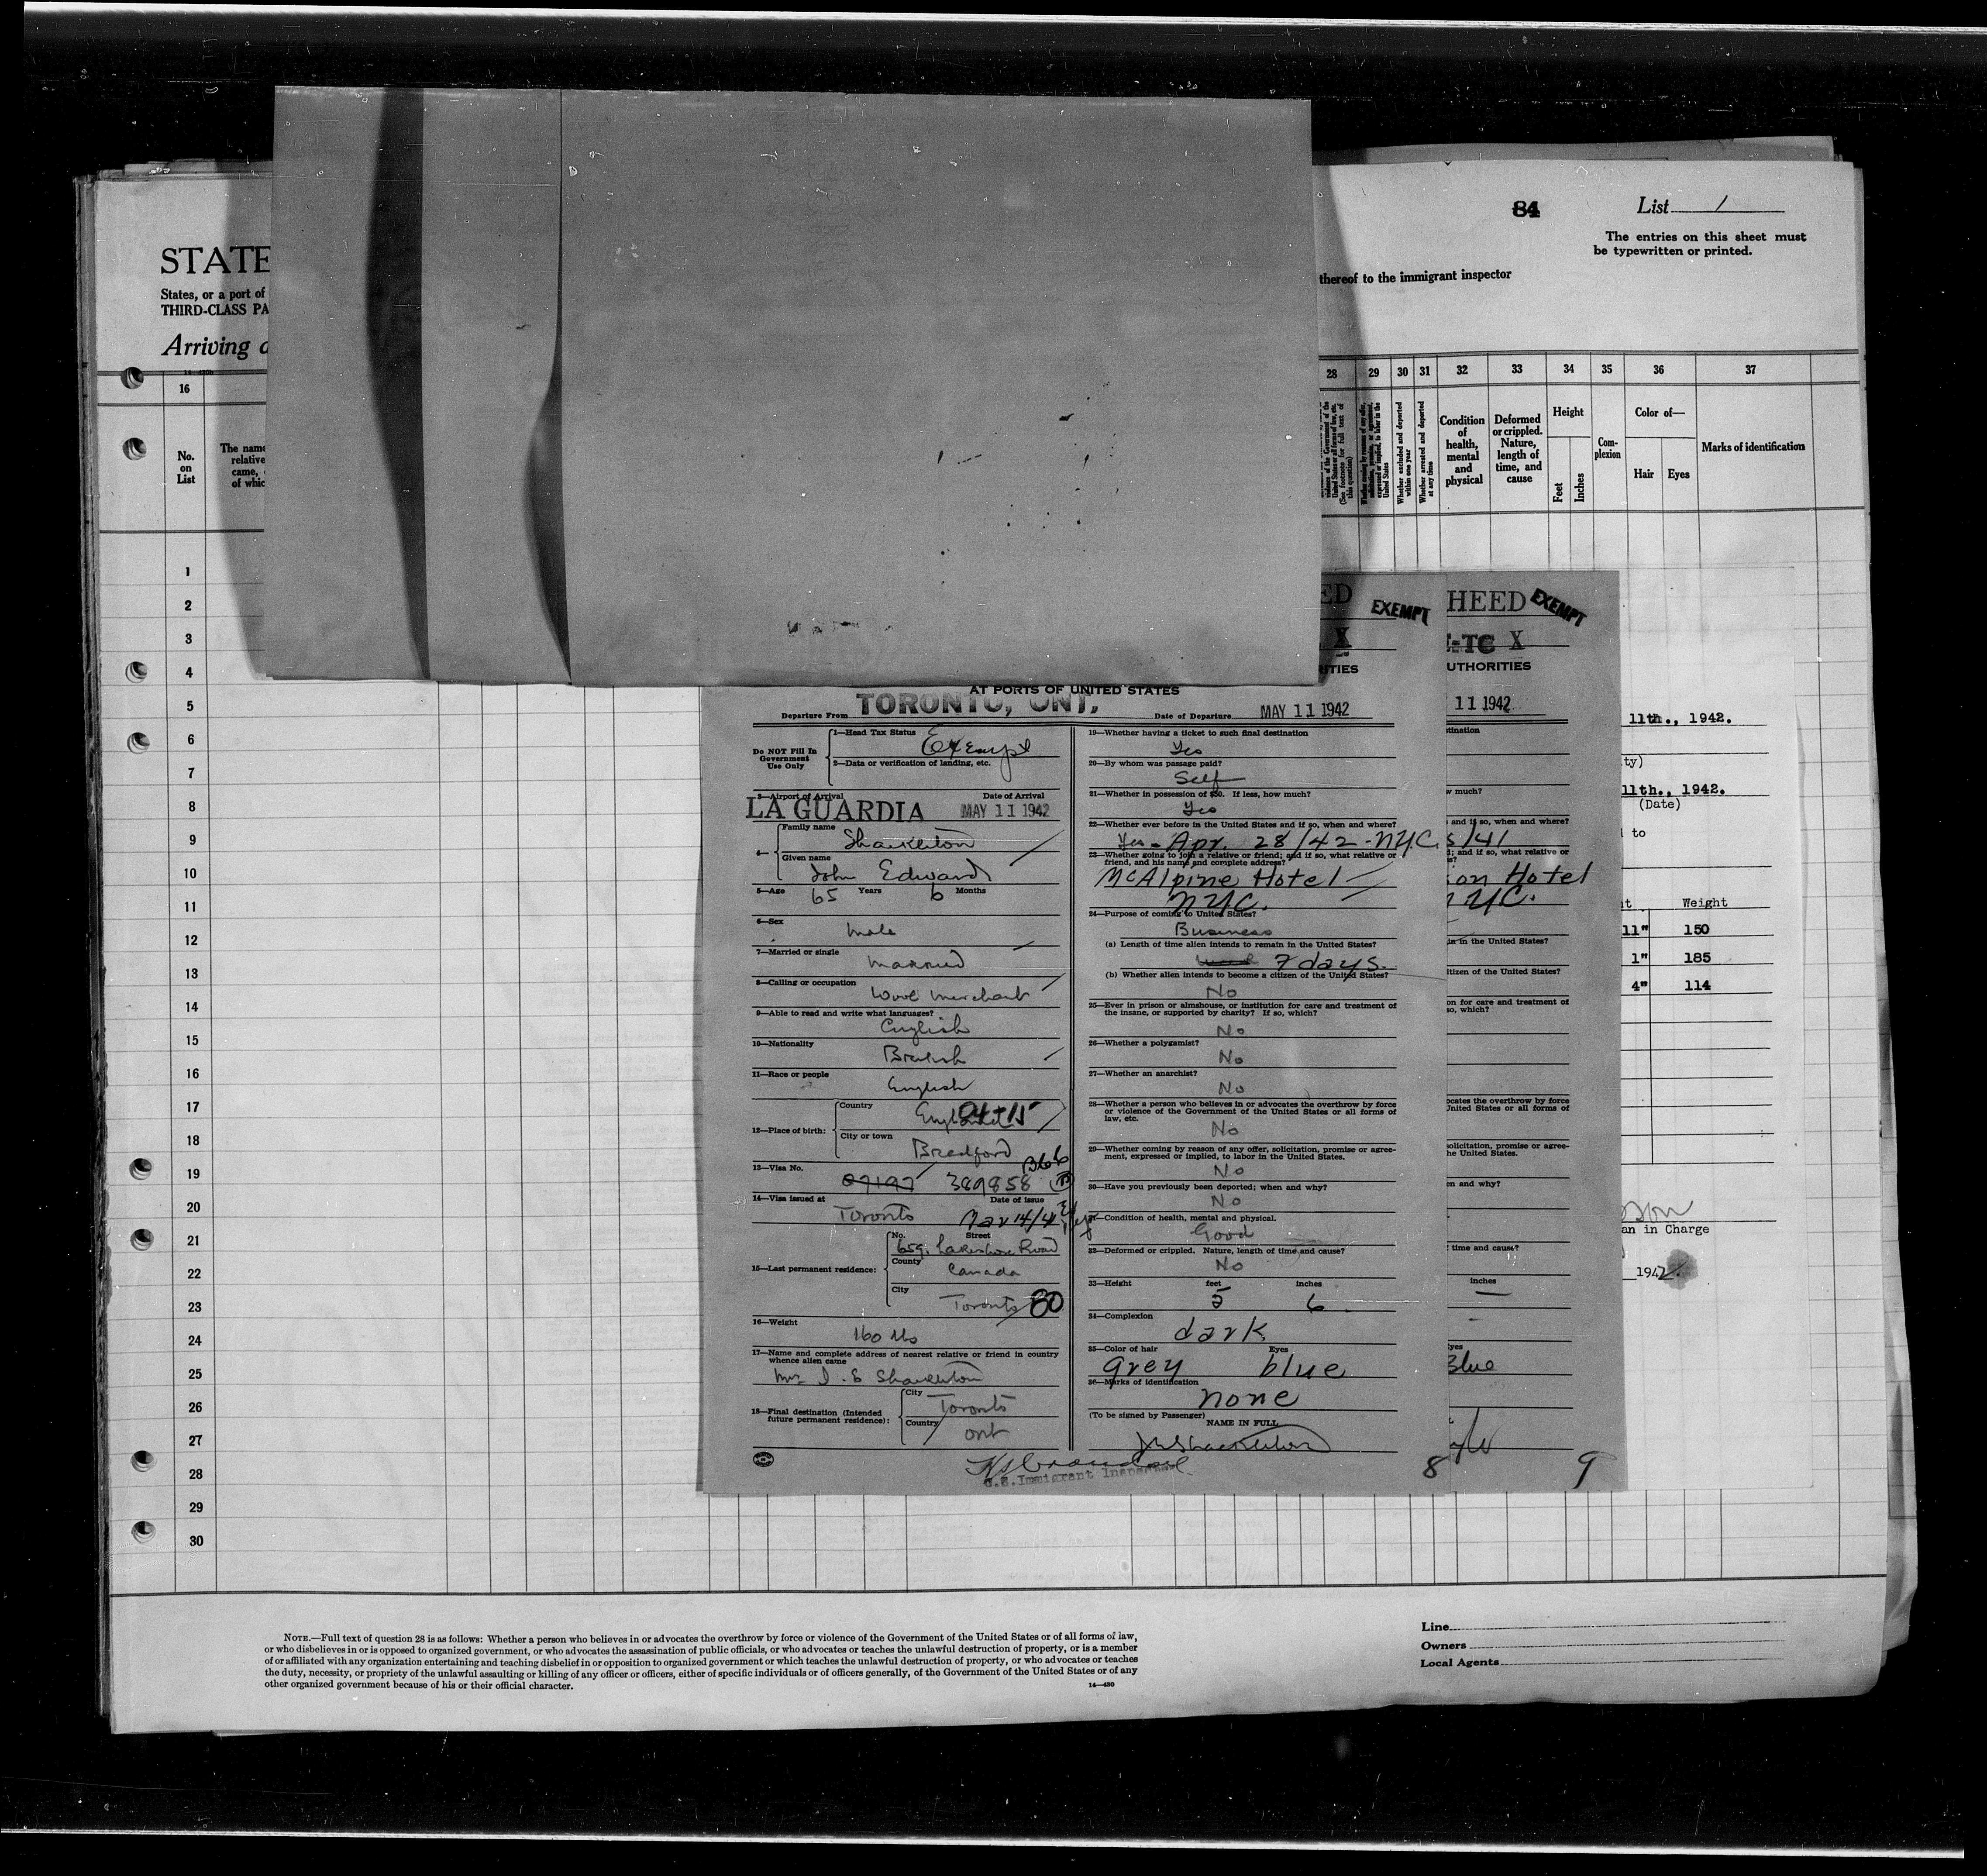 84
List 1
The entries on this sheet must
be typewritten or printed.
STATE
States, or a port of
THIRD-CLASS PA
thereof to the immigrant inspector
Arriving a
16
28 29 30 31 32 33 34 35 36 37
No.
on
List
The name
relative
came,
of whic
violence of the Government of the
United States or all forms of law, etc.
(See footnote for full text of
this question)
Whether excluded and deported
within one year
Whether arrested and deported
at any time
Condition
of
health,
mental
and
physical
Deformed
or crippled.
Nature,
length of
time, and
cause
Height
Feet
Inches
Com-
plexion
Color of—
Hair
Eyes
Marks of identification
1
2
3
4
5
6
7
8
9
10
11
12
13
14
15
16
17
18
19
20
21
22
23
24
25
26
27
28
29
30
ED EXEMPT
X
RITIES
AT PORTS OF UNITED STATES
Departure From TORONTO, ONT. Date of Departure MAY 11 1942
Do NOT Fill In
Government
Use Only
1—Head Tax Status Exempt
2—Data or verification of landing, etc.
3—Airport of Arrival Date of Arrival
LA GUARDIA MAY 11 1942
4—
Family name
Shackleton
Given name
John Edward
5—Age 65 Years 6 Months
6—Sex
male
7—Married or single
married
8—Calling or occupation
Wool merchant
9—Able to read and write what languages?
English
10—Nationality
British
11—Race or people
English
12—Place of birth:
Country
England
City or town
Bradford
13—Visa No.
389858
14—Visa issued at Date of issue
Toronto
15—Last permanent residence:
No. Street
659. Lakeshore Road
County
Canada
City
Toronto 80
16—Weight
160 lbs
17—Name and complete address of nearest relative or friend in country
whence alien came
Mrs J. E Shackleton
18—Final destination (Intended
future permanent residence):
City
Toronto
Country
Ont
19—Whether having a ticket to such final destination
Yes
20—By whom was passage paid?
Self
21—Whether in possession of $50. If less, how much?
Yes
22—Whether ever before in the United States and if so, when and where?
Yes - Apr. 28/42 - NYC.
23—Whether going to join a relative or friend; and if so, what relative or
friend, and his name and complete address?
McAlpine Hotel
NYC.
24—Purpose of coming to United States?
Business
(a) Length of time alien intends to remain in the United States?
7 days.
(b) Whether alien intends to become a citizen of the United States?
No
25—Ever in prison or almshouse, or institution for care and treatment of
the insane, or supported by charity? If so, which?
No
26—Whether a polygamist?
No
27—Whether an anarchist?
No
28—Whether a person who believes in or advocates the overthrow by force
or violence of the Government of the United States or all forms of
law, etc.
No
29—Whether coming by reason of any offer, solicitation, promise or agree-
ment, expressed or implied, to labor in the United States.
No
30—Have you previously been deported; when and why?
No
31—Condition of health, mental and physical.
Good
32—Deformed or crippled. Nature, length of time and cause?
No
33—Height feet inches
5 6
34—Complexion
dark
35—Color of hair Eyes
grey blue
36—Marks of identification
none
(To be signed by Passenger)
NAME IN FULL
U.S. Immigrant Inspector
8
HEED EXEMPT
-TC X
UTHORITIES
11 1942
tination
w much?
and if so, when and where?
5/41
d; and if so, what relative or
son Hotel
NYC.
in in the United States?
itizen of the United States?
on for care and treatment of
so, which?
ocates the overthrow by force
United States or all forms of
solicitation, promise or agree-
he United States.
en and why?
time and cause?
inches
Eyes
Blue
9
11th., 1942.
ty)
11th., 1942.
(Date)
to
t Weight
11" 150
1" 185
4" 114
an in Charge
1942
NOTE.—Full text of question 28 is as follows: Whether a person who believes in or advocates the overthrow by force or violence of the Government of the United States or of all forms of law,
or who disbelieves in or is opposed to organized government, or who advocates the assassination of public officials, or who advocates or teaches the unlawful destruction of property, or is a member
of or affiliated with any organization entertaining and teaching disbelief in or opposition to organized government or which teaches the unlawful destruction of property, or who advocates or teaches
the duty, necessity, or propriety of the unlawful assaulting or killing of any officer or officers, either of specific individuals or of officers generally, of the Government of the United States or of any
other organized government because of his or their official character.
14—430
Line
Owners
Local Agents